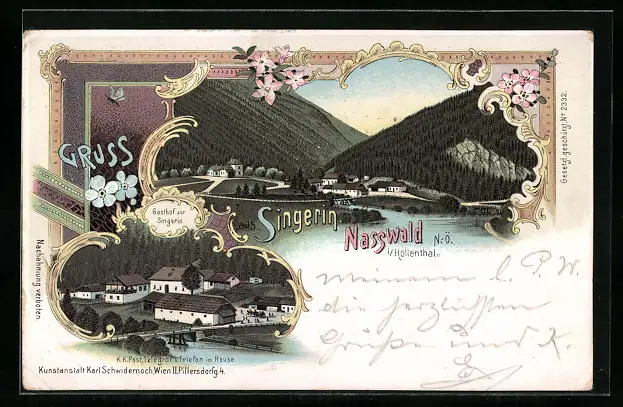 GRUSS
aus
Singerin.
Nasswald N.-Ö.
i/Höllenthal.
Gasthof zur
Singerin.
K.K. Post, Telegraf u. Telefon im Hause.
Kunstanstalt Karl Schwidernoch, Wien II. Pillersdorfg. 4.
Nachahmung verboten.
Gesetzl. geschützt. No 2332.
Meinem l. P. W.
die herzlichsten
Grüße und K.